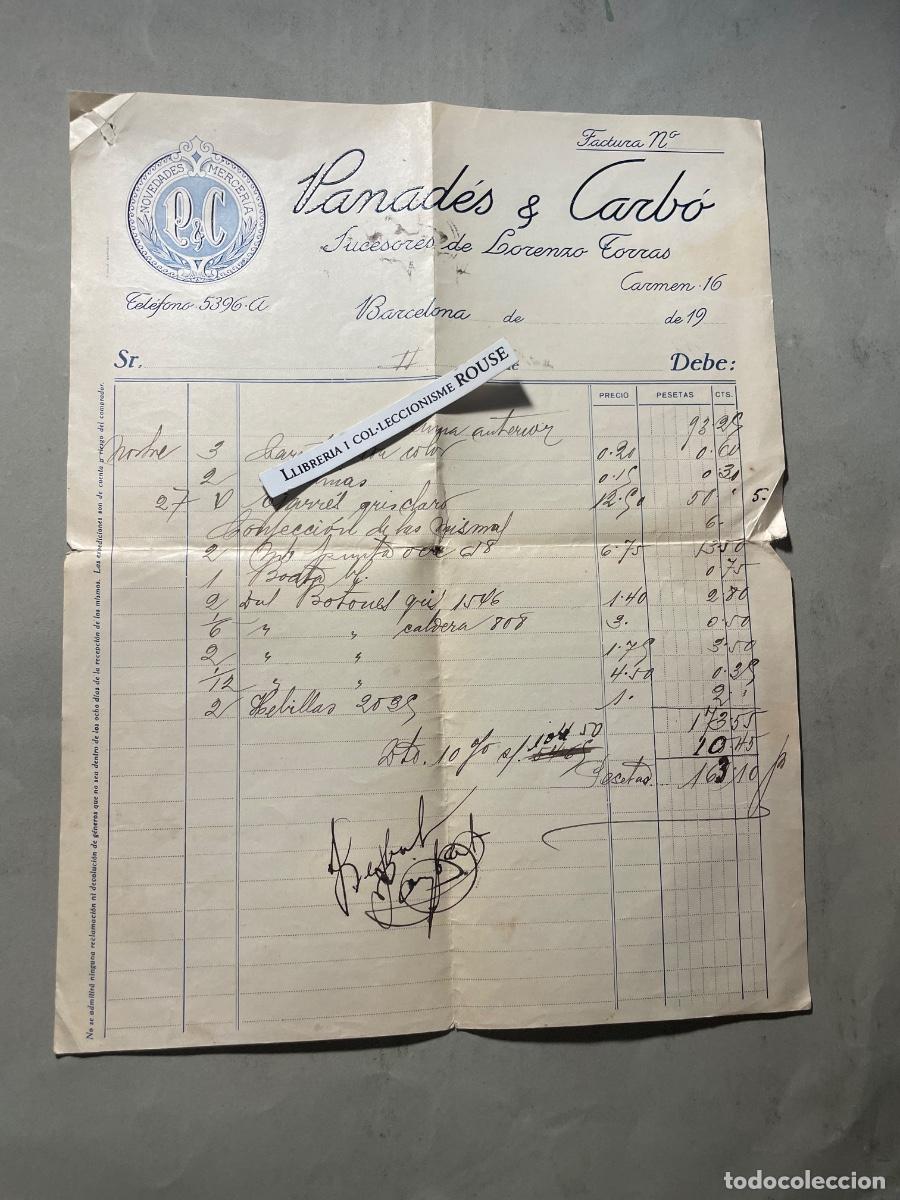 Factura Nº
NOVEDADES MERCERIA
P&C
Panadés & Carbó
Sucesores de Lorenzo Torras
Carmen·16
Teléfono 5396·A
Barcelona de de 19
Sr. Debe:
LLIBRERIA I COL·LECCIONISME ROUSE
PRECIO PESETAS CTS.
anterior 93.25
3 color 0.20 0.60
2 0.15 0.30
27 gris claro 12.50 50 5.
Confección de las mismas 6.
2 punta 618 6.75 13.50
1 0.75
2 Botones gris 1546 1.40 2.80
1/6 " " caldera 808 3. 0.50
2 " " 1.75 3.50
1/12 " " 4.50 0.35
2 Hebillas 2035 1. 2.
173.55
Dto. 10 % s/. 104.50 10.45
Pesetas 163.10
No se admitirá ninguna reclamación ni devolución de géneros que no sea dentro de los ocho días de la recepción de los mismos. Las expediciones son de cuenta y riesgo del comprador.
todocoleccion